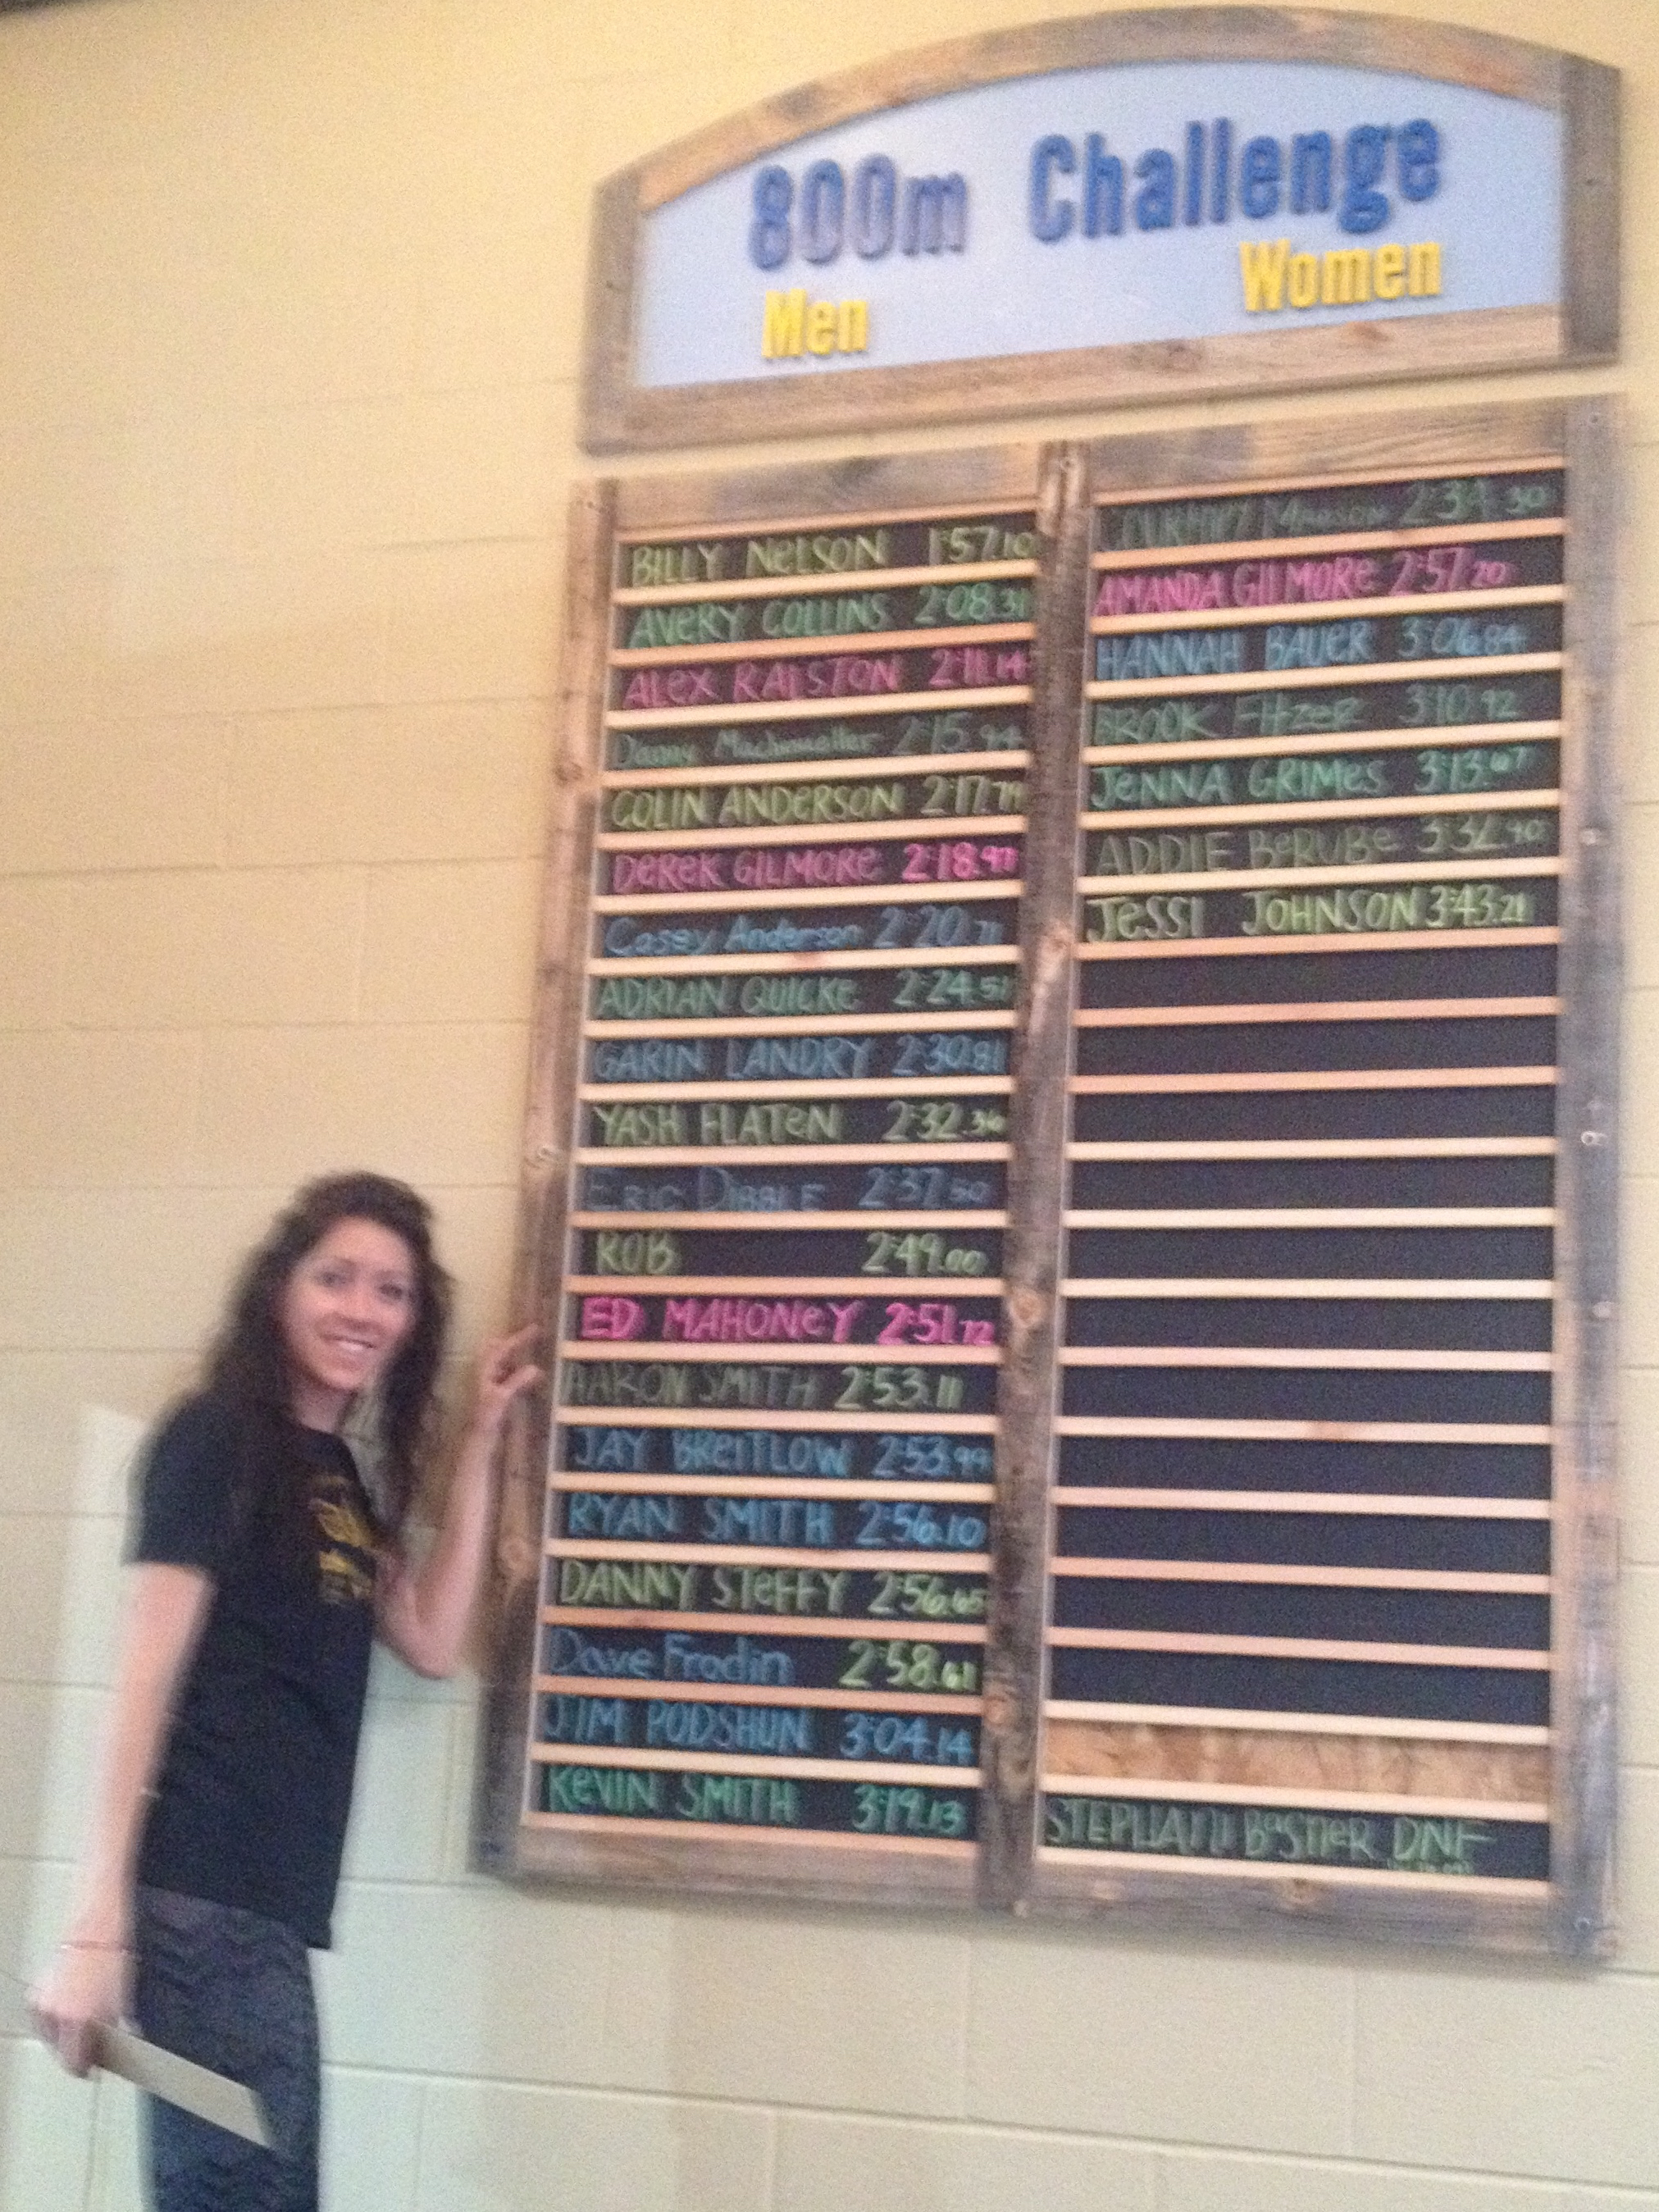 800m Challenge
Men Women
BILLY NELSON 1:57.10
AVERY COLLINS 2:08.31
ALEX RALSTON 2:11.14
Danny 2:15.94
COLIN ANDERSON 2:17.79
DEREK GILMORE 2:18.97
Casey Anderson 2:20.71
ADRIAN QUICKE 2:24.51
GARIN LANDRY 2:30.81
YASH FLATEN 2:32.36
ERIC DIBBLE 2:37.50
ROB 2:49.00
ED MAHONEY 2:51.72
AARON SMITH 2:53.11
JAY BREITLOW 2:53.99
RYAN SMITH 2:56.10
DANNY STEFFY 2:56.65
Dave Frodin 2:58.61
JIM PODSHUN 3:04.14
KEVIN SMITH 3:19.13
2:39.30
AMANDA GILMORE 2:57.20
HANNAH BAUER 3:06.84
BROOK FITZER 3:10.92
JENNA GRIMES 3:13.67
ADDIE BERUBE 3:32.90
JESSI JOHNSON 3:43.21
STEPHANII BASTIER DNF